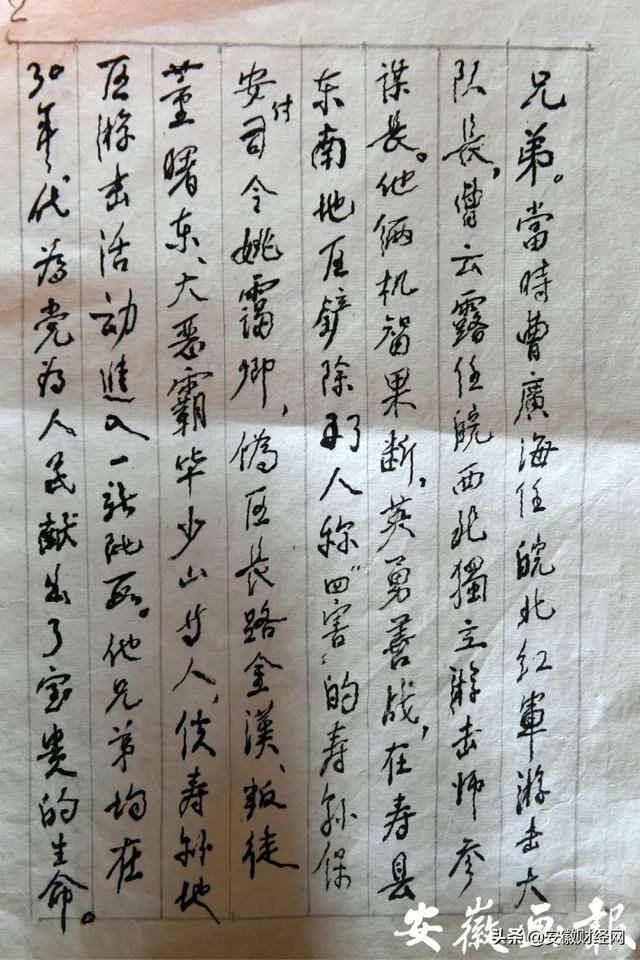 2
兄弟。當時曹廣海任皖北红軍游击大
队長,曹云露任皖西北獨立游击师参
谋長。他俩机智果断,英勇善战,在寿县
东南地区鏟除了人称“四害”的寿縣保
安付司令姚靄卿,偽区長路金漢、叛徒
董曙东、大恶霸毕少山等人,使寿縣地
区游击活动進入一新阶段。他兄弟均在
30年代為党為人民献出了宝贵的生命。
安徽画報
头条 @安徽财经网